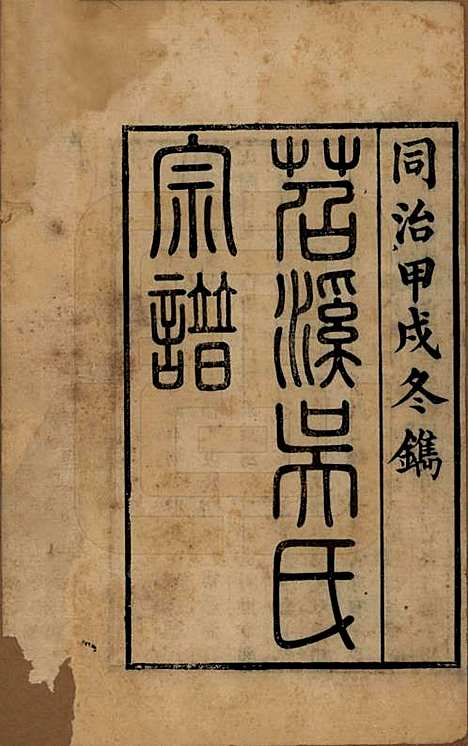 同治甲戌冬鐫
苕溪吳氏
宗譜